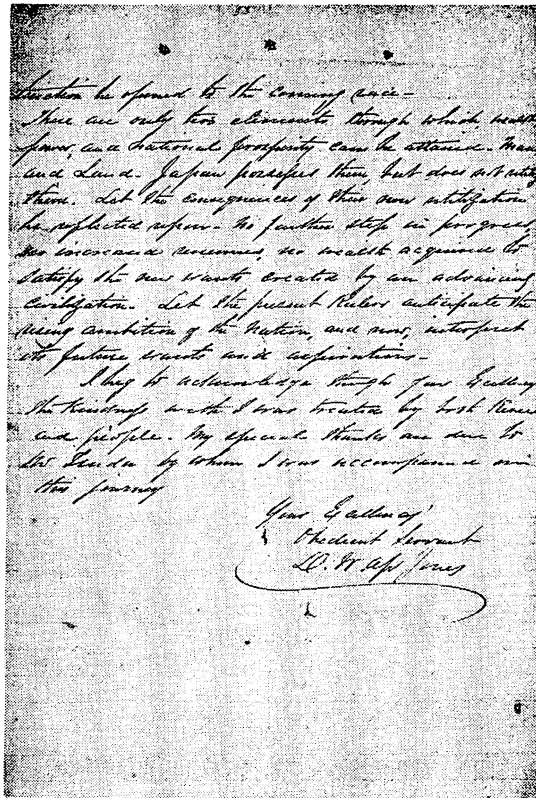 be opened to the coming race-
There are only two elements, through which wealth
power, and national prosperity can be attained- Man
and Land- Japan possesses them, but does not utilize
them. Let the consequences of their non utilization
be reflected upon- No further step in progress,
no increased revenues, no wealth acquired to
satisfy the new wants created by an advancing
civilization. Let the present Rulers anticipate the
rising ambition of the Nation, and now, interpret
its future wants and aspirations-
I beg to acknowledge through your Excellency
the kindness with I was treated by both
and people. My special thanks are due to
Mr by whom I was accompanied over
this journey
Your Excellency's
Obedient Servant
D. W. Ap Jones